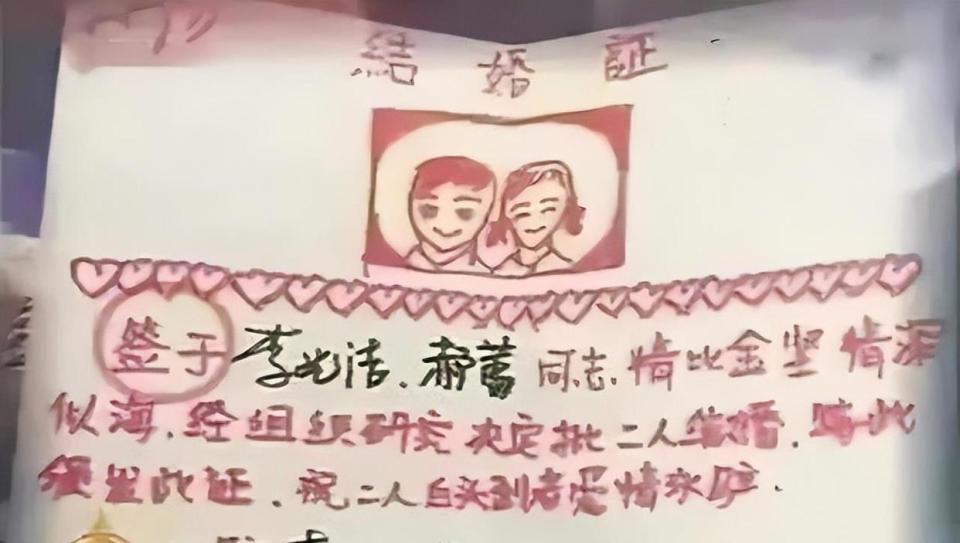 結婚証
签于李光洁、郝蕾同志,情比金坚情深
似海,经组织研究决定批二人结婚,特此
颁发此证,祝二人白头到老爱情永驴.